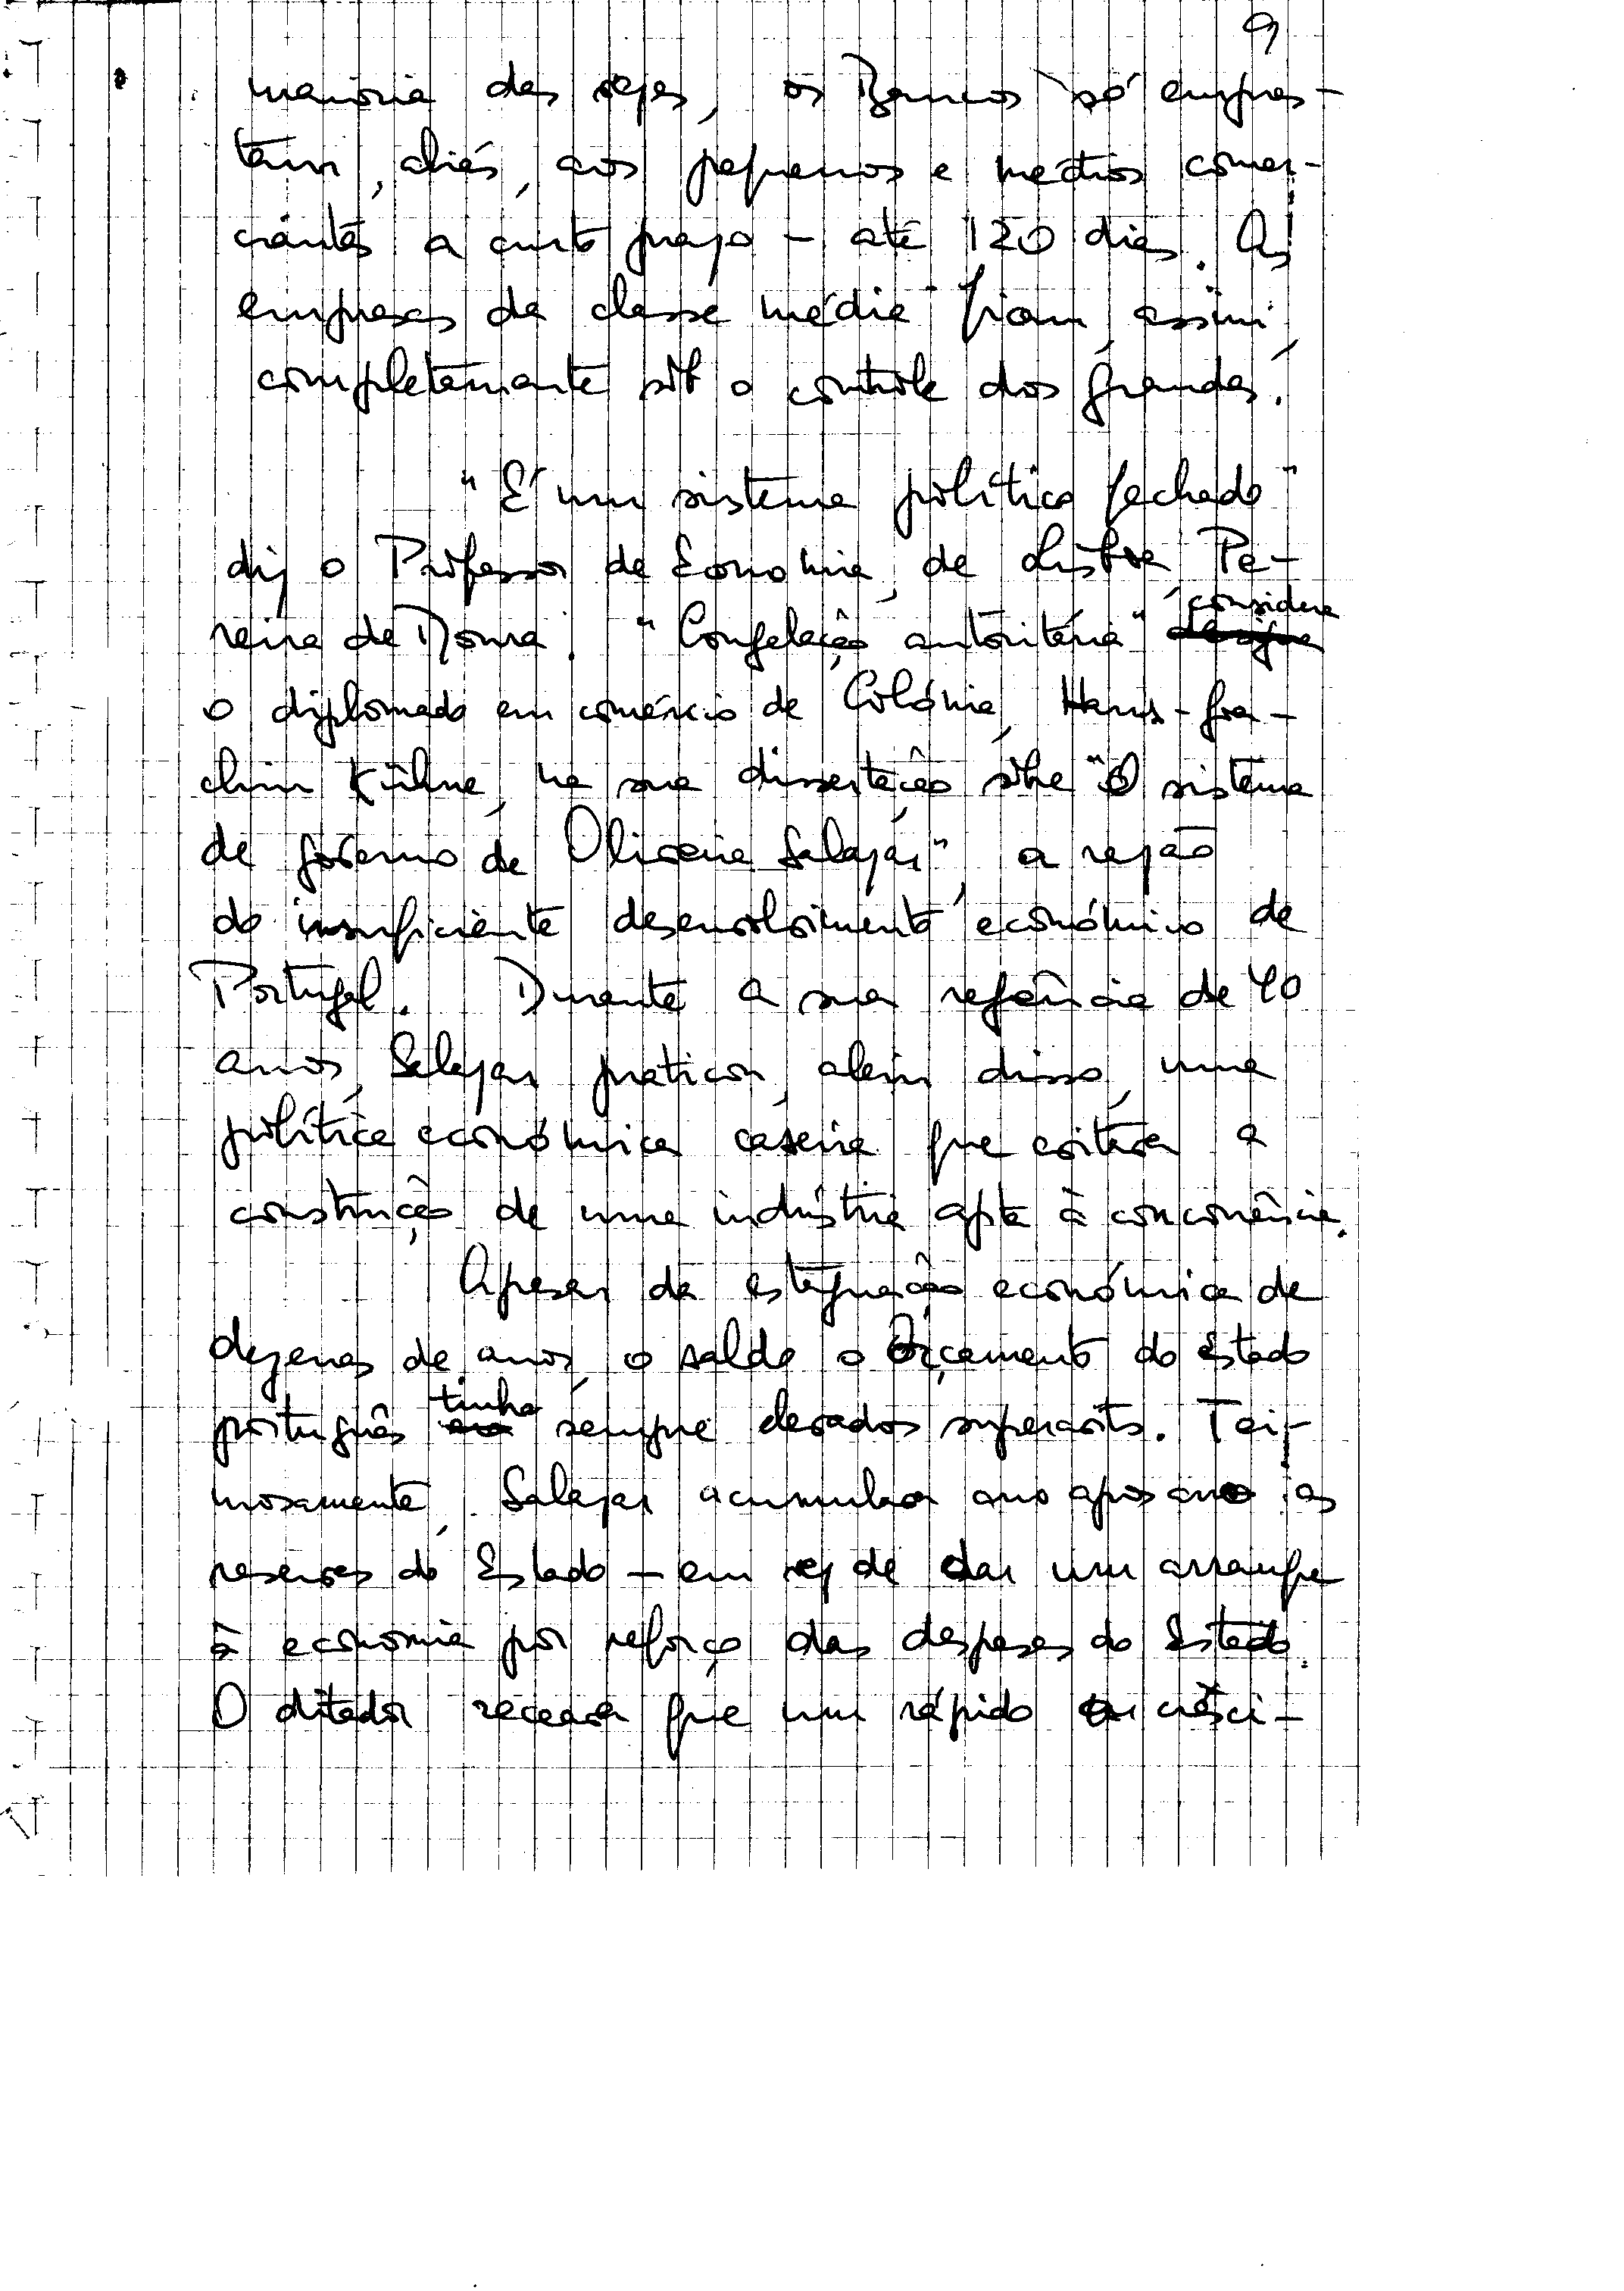 9
maioria das vezes, os Bancos só empres-
tam, aliás, aos pequenos e médios comer-
ciantes a curto prazo - até 120 dias. As
empresas da classe média ficam, assim,
completamente sob o contrôle dos grandes.
"É um sistema político fechado"
diz o Professor de Economia, de Lisboa Pe-
reira de Moura. "Congelação autoritária" considera
o diplomado em comércio de Colónia, Hans-Joa-
chim Kühne, na sua dissertação sôbre "O sistema
de govêrno de Oliveira Salazar", a razão
do insuficiente desenvolvimento económico de
Portugal. Durante a sua regência de 40
anos, Salazar praticou, além disso, uma
política económica caseira que evitava a
construção de uma indústria apta à concorrência.
Apesar da estagnação económica de
dezenas de anos, o saldo o Orçamento do Estado
português tinha sempre elevados superavits. Tei-
mosamente, Salazar acumulava ano após ano as
reservas do Estado - em vez de dar um arranque
à economia por refôrço das despesas do Estado.
O ditador receava que um rápido cresci-